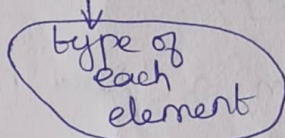 type of
each
element